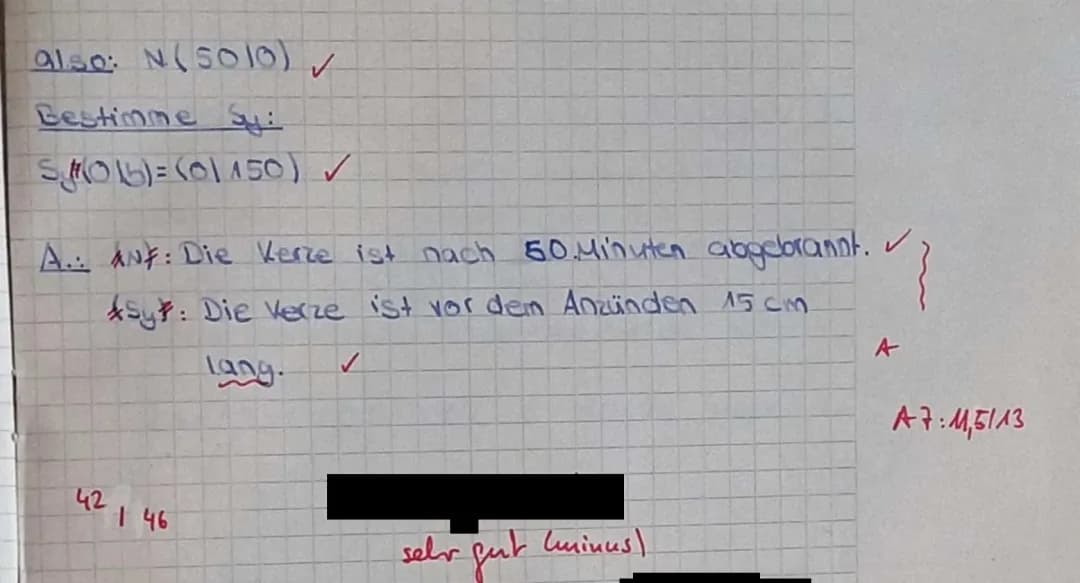 also: N(50|0) ✓
Bestimme Sy:
Sy(0|b)=(0|150) ✓
A.: *N*: Die Kerze ist nach 50 Minuten abgebrannt. ✓
*Sy*: Die Kerze ist vor dem Anzünden 15 cm
lang. ✓
A
A7: 11,5/13
42 / 46
sehr gut (minus)